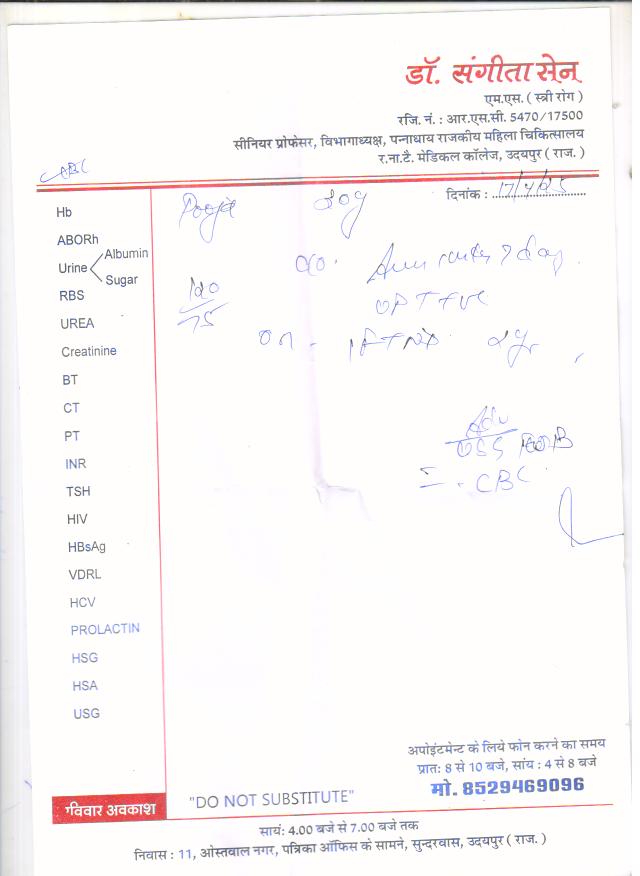 डॉ. संगीता सेन
एम.एस. ( स्त्री रोग )
रजि. नं. : आर.एस.सी. 5470/17500
सीनियर प्रोफेसर, विभागाध्यक्ष, पन्नाधाय राजकीय महिला चिकित्सालय
र.ना.टै. मेडिकल कॉलेज, उदयपुर ( राज. )
दिनांक : 17/4/25
Hb
ABORh
Urine Albumin
Sugar
RBS
UREA
Creatinine
BT
CT
PT
INR
TSH
HIV
HBsAg
VDRL
HCV
PROLACTIN
HSG
HSA
USG
Pooja
7 day
UPT +ve
Adv
CBC
अपोइंटमेन्ट के लिये फोन करने का समय
प्रात: 8 से 10 बजे, सांय : 4 से 8 बजे
मो. 8529469096
रविवार अवकाश
"DO NOT SUBSTITUTE"
सायं: 4.00 बजे से 7.00 बजे तक
निवास : 11, ओस्तवाल नगर, पत्रिका ऑफिस के सामने, सुन्दरवास, उदयपुर ( राज. )